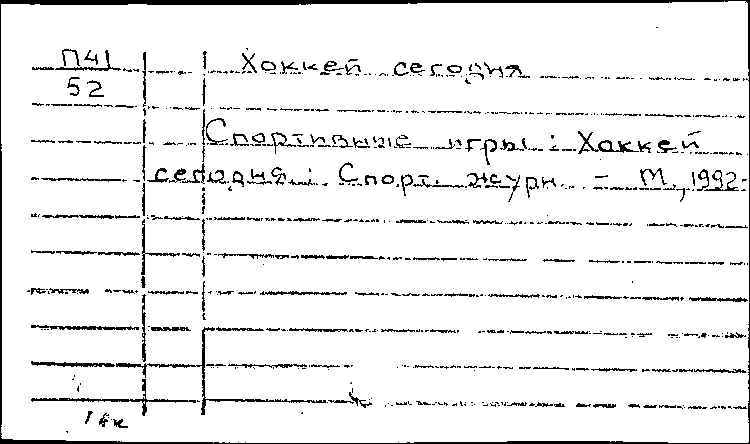 П41 Хоккей сегодня
52
Спортивные игры : Хоккей
сегодня : Спорт. журн. – М., 1992-